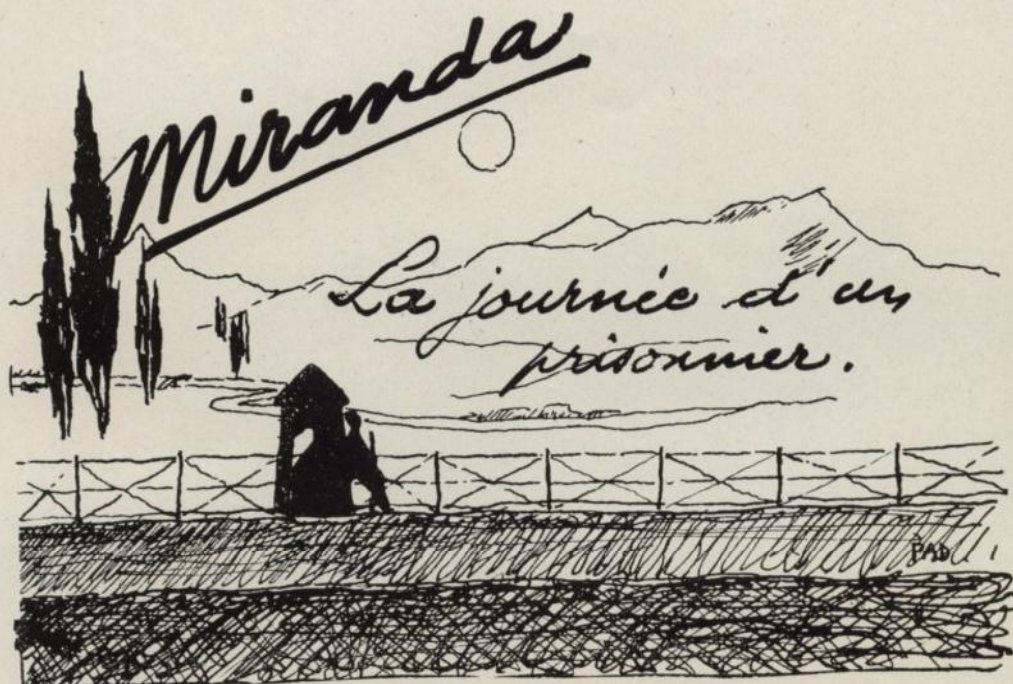 Miranda
La journée d'un
prisonnier.
PAD